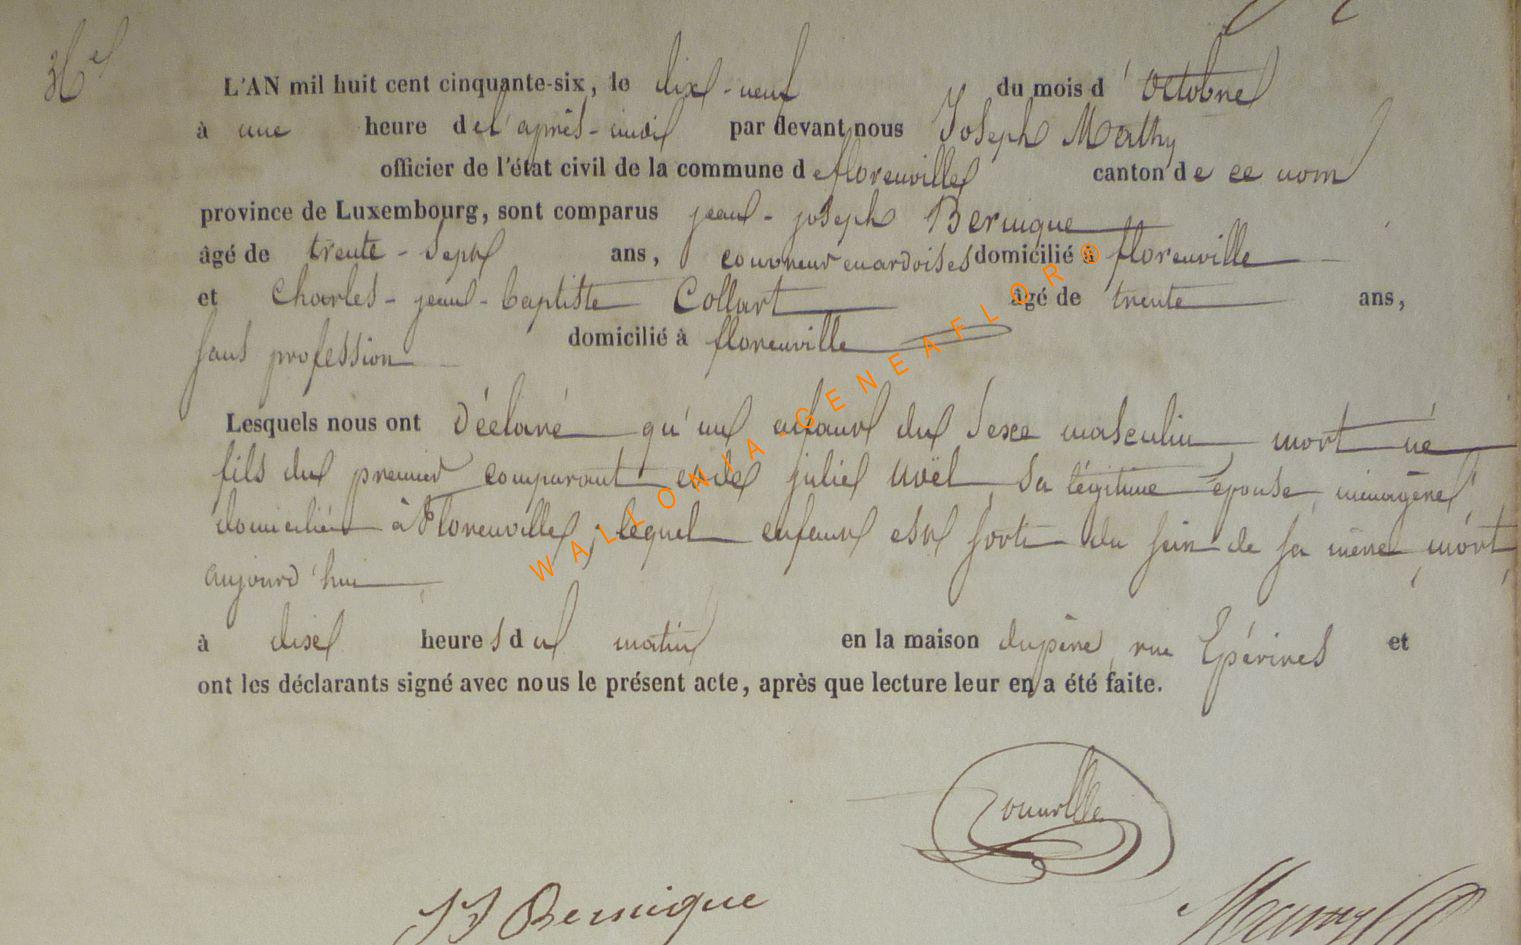 36e
L'AN mil huit cent cinquante-six, le dix-neuf du mois d'octobre
à une heure de l'après-midi par devant nous Joseph Mathy
officier de l'état civil de la commune de florenville canton de ce nom
province de Luxembourg, sont comparus jean-joseph Bernique
âgé de trente-sept ans, couvreur en ardoises domicilié à florenville
et Charles-jean-baptiste Collart âgé de trente ans,
sans profession domicilié à florenville
Lesquels nous ont déclaré qu'un enfant du sexe masculin, mort né
fils du premier comparant et de julie Noël, sa légitime épouse, ménagère,
domiciliés à Florenville, lequel enfant est sorti du sein de sa mère, mort,
aujourd'hui,
à dix heures du matin en la maison du père, rue Epérires et
ont les déclarants signé avec nous le présent acte, après que lecture leur en a été faite.
JJ Bernique
WALLONIA-GENEAFLOR®